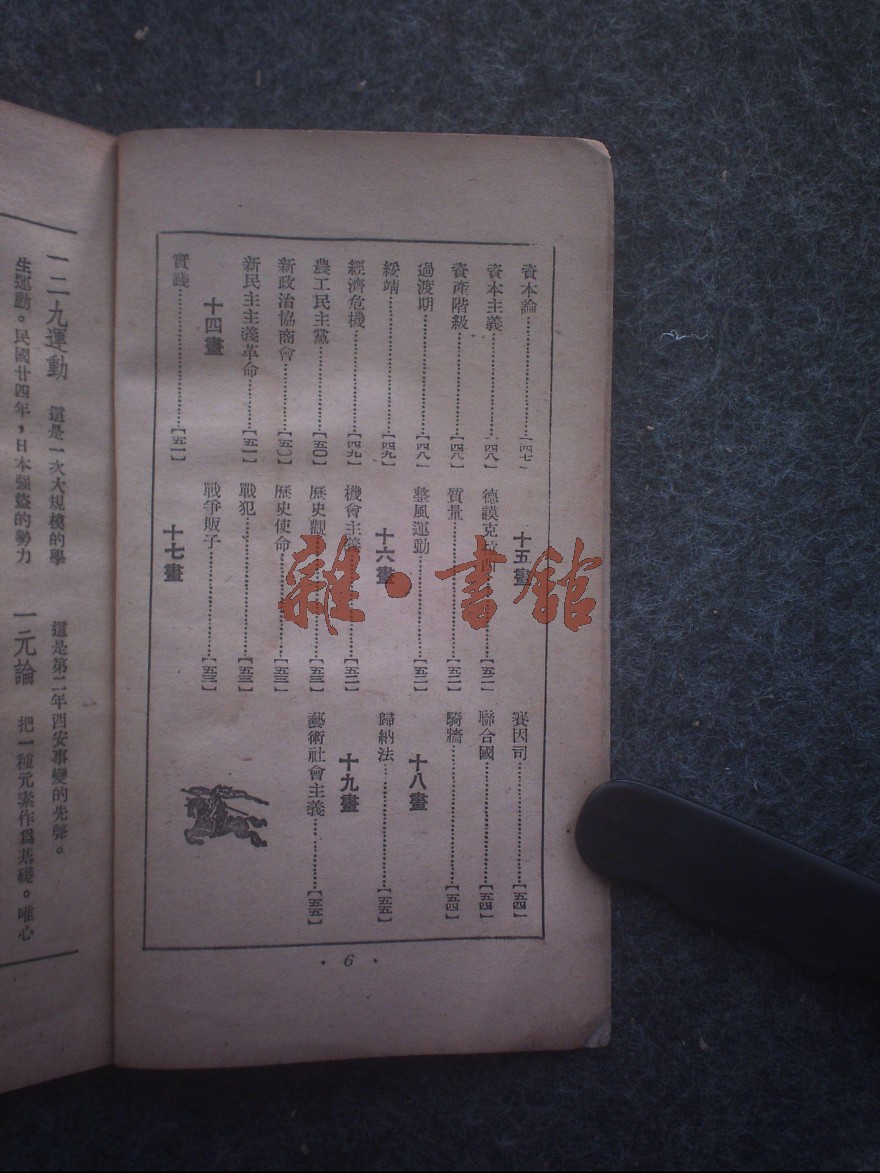 資本論【四七】
資本主義【四八】
資產階級【四八】
過渡期【四八】
綏靖【四九】
經濟危機【四九】
農工民主黨【五〇】
新政治協商會【五〇】
新民主主義革命【五一】
十四畫
實踐【五一】
十五畫
德謨克拉西【五二】
質量【五二】
整風運動【五二】
十六畫
機會主義【五二】
歷史觀【五三】
歷史使命【五三】
戰犯【五三】
戰爭販子【五三】
十七畫
賽因司【五四】
聯合國【五四】
騎牆【五四】
十八畫
歸納法【五五】
十九畫
藝術社會主義【五五】
· 6 ·
一二九運動 這是一次大規模的學
生運動。民國廿四年，日本強盜的勢力
這是第二年西安事變的先聲。
一元論 把一種元素作爲基礎。唯心
雜·書館